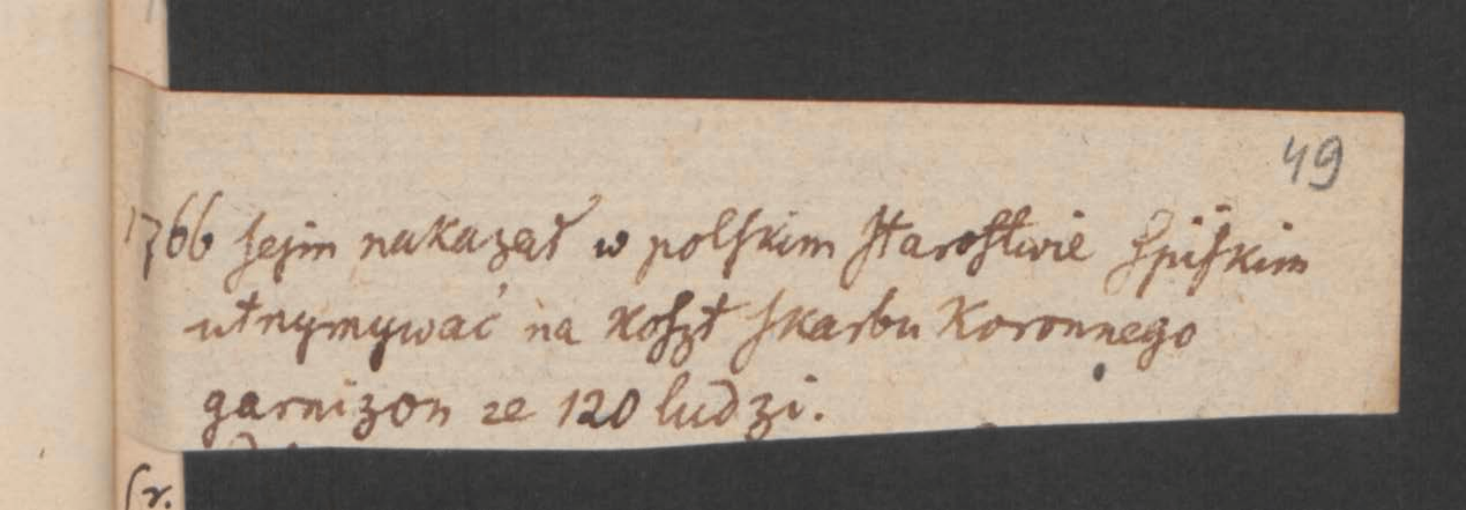 49
1766 sejm nakazał w polskim Starostwie Spiskim
utrzymywać na koszt skarbu Koronnego
garnizon ze 120 ludzi.
fr.